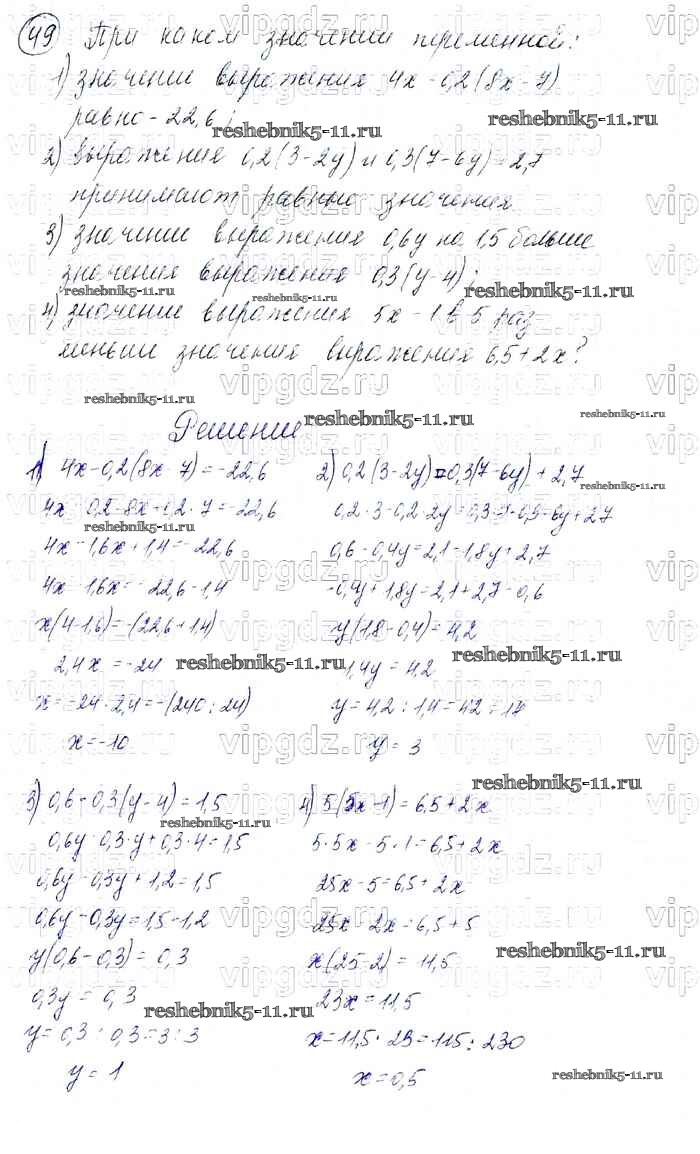 49 При каком значении переменной:
1) значение выражения 4x-0,2(8x-7)
равно -22,6;
reshebnik5-11.ru
2) выражения 0,2(3-2y) и 0,3(7-6y)+2,7
принимают равные значения
3) значение выражения 0,6y на 1,5 больше
значения выражения 0,3(y-4);
reshebnik5-11.ru reshebnik5-11.ru
4) значение выражения 5x-1 в 5 раз
меньше значения выражения 6,5+2x?
reshebnik5-11.ru reshebnik5-11.ru
Решение
1) 4x-0,2(8x-7)=-22,6
4x-0,2·8x+0,2·7=-22,6
reshebnik5-11.ru
4x-1,6x+1,4=-22,6
4x-1,6x=-22,6-1,4
x(4-1,6)=-(22,6+1,4)
2,4x=-24 reshebnik5-11.ru
x=-24:2,4=-(240:24)
x=-10
2) 0,2(3-2y)=0,3(7-6y)+2,7
0,2·3-0,2·2y=0,3·7-0,3·6y+2,7
0,6-0,4y=2,1-1,8y+2,7
-0,4y+1,8y=2,1+2,7-0,6
y(1,8-0,4)=4,2
reshebnik5-11.ru
1,4y=4,2
y=4,2:1,4=42:14
y=3
reshebnik5-11.ru
3) 0,6-0,3(y-4)=1,5
reshebnik5-11.ru
0,6y-0,3·y+0,3·4=1,5
0,6y-0,3y+1,2=1,5
0,6y-0,3y=1,5-1,2
y(0,6-0,3)=0,3
0,3y=0,3
reshebnik5-11.ru
y=0,3:0,3=3:3
y=1
4) 5(5x-1)=6,5+2x
5·5x-5·1=6,5+2x
25x-5=6,5+2x
25x-2x=6,5+5
reshebnik5-11.ru
x(25-2)=11,5
23x=11,5
x=11,5:23=115:230
x=0,5
reshebnik5-11.ru
vipgdz.ru